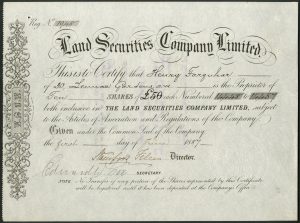 Reg. No.
Land Securities Company Limited.
This is to Certify that Henry Farquhar
of is the Proprietor of
SHARES of £50 each Numbered to
both inclusive in THE LAND SECURITIES COMPANY LIMITED, subject
to the Articles of Association and Regulations of the Company.
Given under the Common Seal of the Company,
the first day of June 1887
Director.
SECRETARY
NOTE. No Transfer of any portion of the Shares represented by this Certificate
will be registered until it has been deposited at the Company's Office.